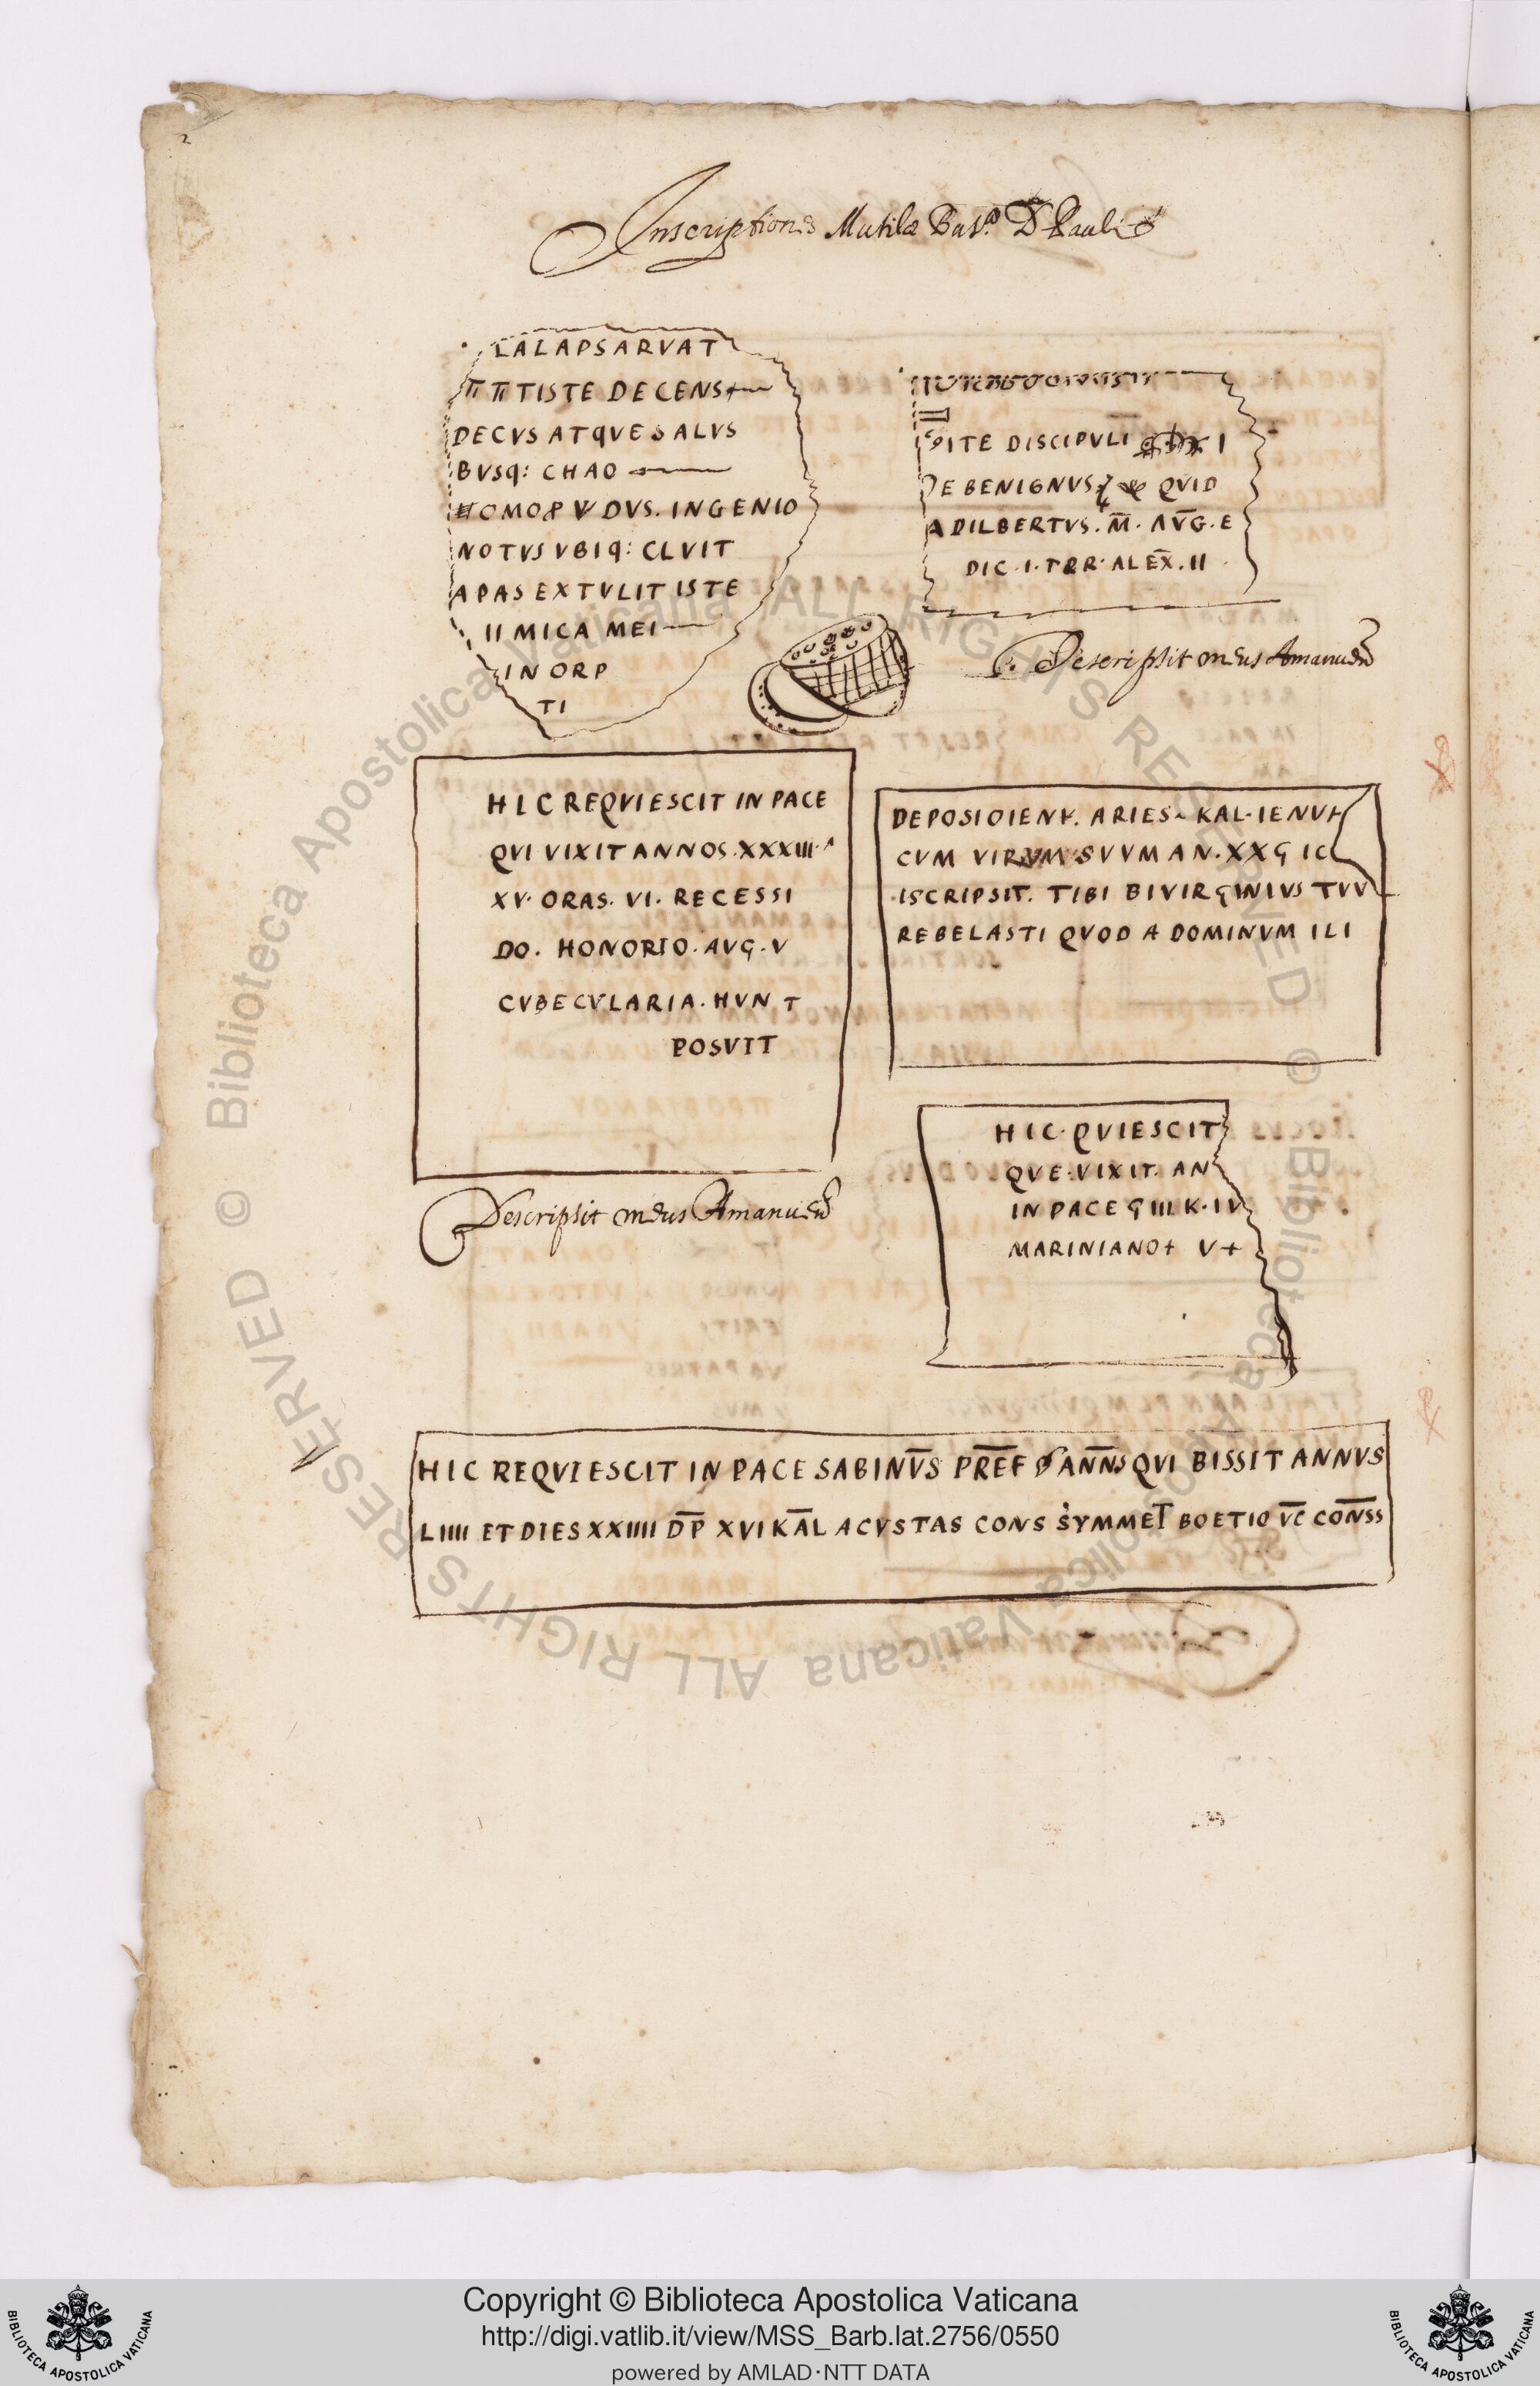 Inscriptiones Mutilæ Bas.ᶜᵃ D. Pauli
LALAPSARVAT
TISTE DECENS
DECVS ATQVE SALVS
BVSq: CHAO
HOMO DVS. INGENIO
NOTVS VBIq: CLVIT
APAS EXTVLIT ISTE
II MICA MEI
IN ORP
TI
PITE DISCIPVLI I
E BENIGNVS QVID
ADILBERTVS. M̅. AV̅G. E
DIC. I. TRR. ALEX̅. II
Descripsit meus Amanuen
HIC REQVIESCIT IN PACE
QVI VIXIT ANNOS. XXXIII.
XV. ORAS. VI. RECESSI
DO. HONORIO. AVG. V
CVBECVLARIA. HVN T
POSVIT
Descripsit meus Amanuen
DEPOSIO IENV. ARIES KAL. IENV
CVM VIRVM SVVM AN. XXG IC
ISCRIPSIT. TIBI BIVIRGINIVS TVV
REBELASTI QVOD A DOMINVM ILI
HIC. QVIESCIT
QVE. VIXIT. AN
IN PACE G III K. IV
MARINIANO+ V+
HIC REQVIESCIT IN PACE SABINV̅S PR̅E̅F ANN̅S QVI BISSIT ANNVS
LIIII ET DIES XXIIII D̅P̅ XVI KA̅L ACVSTAS CONS SYMMET̅ BOETIO V̅C̅ CON̅S̅S
© Biblioteca Apostolica Vaticana ALL RIGHTS RESERVED
© Biblioteca Apostolica Vaticana ALL RIGHTS RESERVED
Copyright © Biblioteca Apostolica Vaticana
http://digi.vatlib.it/view/MSS_Barb.lat.2756/0550
powered by AMLAD·NTT DATA
BIBLIOTECA APOSTOLICA VATICANA
BIBLIOTECA APOSTOLICA VATICANA